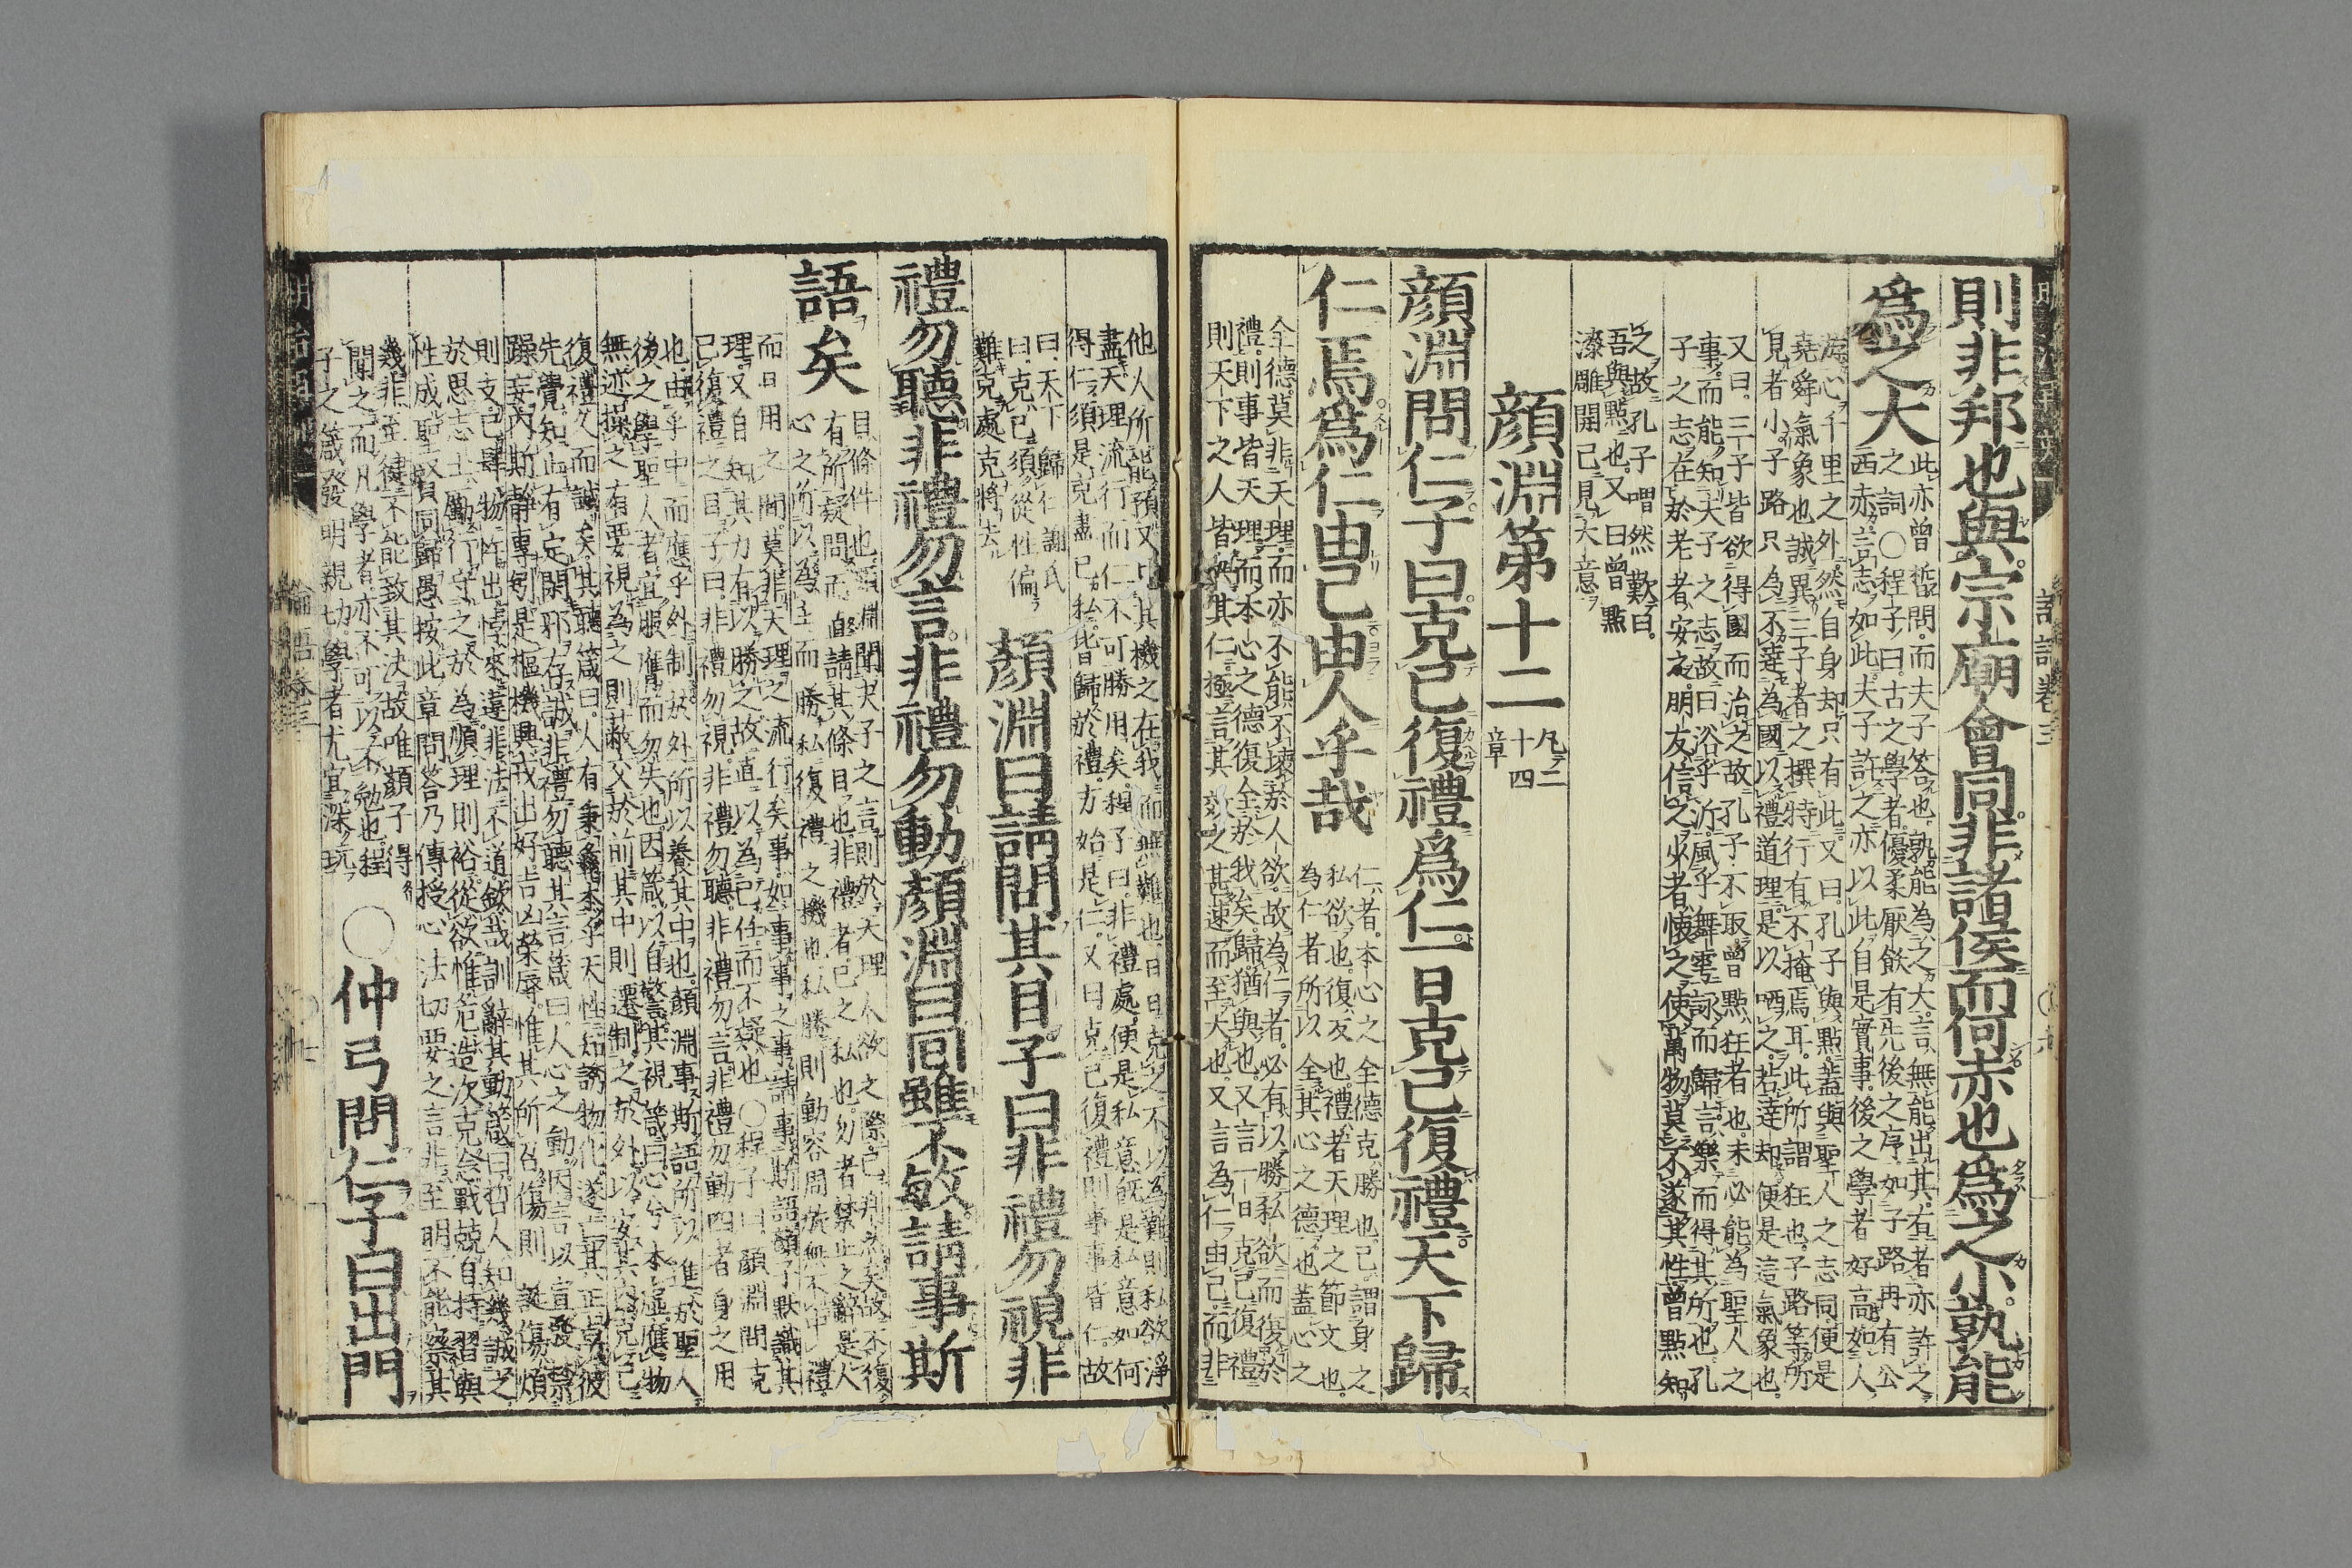 則非邦也與宗廟會同非諸侯而何赤也爲之小孰能
爲之大
此亦曾晳問而夫子答也孰能為之大言無能出其右者亦許之
之詞○程子曰古之學者優柔厭飫有先後之序如子路冉有公
西赤言志如此夫子許之亦以此自是實事後之學者好高如人
游心千里之外然自身却只有此又曰孔子與點蓋與聖人之志同便是
堯舜氣象也誠異三子者之撰特行有不掩焉耳此所謂狂也子路等所
見者小子路只為不達為國以禮道理是以哂之若達却便是這氣象也
又曰三子皆欲得國而治之故孔子不取曾點狂者也未必能為聖人之
事而能知夫子之志故曰浴乎沂風乎舞雩詠而歸言樂而得其所也孔
子之志在於老者安之朋友信之少者懷之使萬物莫不遂其性曾點知
之故孔子喟然歎曰
吾與點也又曰曾點
漆雕開已見大意
顔淵第十二
凡二
十四
章
顔淵問仁子曰克己復禮爲仁一日克己復禮天下歸
仁焉爲仁由己而由人乎哉
仁者本心之全德克勝也己謂身之
私欲也復反也禮者天理之節文也
為仁者所以全其心之德也蓋心之
全德莫非天理而亦不能不壞於人欲故為仁者必有以勝私欲而復於
禮則事皆天理而本心之德復全於我矣歸猶與也又言一日克己復禮
則天下之人皆與其仁極言其效之甚速而至大也又言為仁由己而非
他人所能預又見其機之在我而無難也日日克之不以為難則私欲淨
盡天理流行而仁不可勝用矣程子曰非禮處便是私意既是私意如何
得仁須是克盡己私皆歸於禮方始是仁又曰克己復禮則事事皆仁故
曰天下歸仁謝氏
曰克己須從性偏
難克處克將去
顔淵曰請問其目子曰非禮勿視非
禮勿聽非禮勿言非禮勿動顔淵曰回雖不敏請事斯
語矣
目條件也顔淵聞夫子之言則於天理人欲之際已判然矣故不復
有所疑問而直請其條目也非禮者己之私也勿者禁止之辭是人
心之所以為主而勝私復禮之機也私勝則動容周旋無不中禮
而日用之間莫非天理之流行矣事如事事之事請事斯語顔子默識其
理又自知其力有以勝之故直以為己任而不疑也○程子曰顔淵問克
己復禮之目子曰非禮勿視非禮勿聽非禮勿言非禮勿動四者身之用
也由乎中而應乎外制於外所以養其中也顔淵事斯語所以進於聖人
後之學聖人者宜服膺而勿失也因箴以自警其視箴曰心兮本虛應物
無迹操之有要視為之則蔽交於前其中則遷制之於外以安其內克己
復禮久而誠矣其聽箴曰人有秉彝本乎天性知誘物化遂亡其正卓彼
先覺知止有定閑邪存誠非禮勿聽其言箴曰人心之動因言以宣發禁
躁妄內斯靜專矧是樞機興戎出好吉凶榮辱惟其所召傷則誕傷煩
則支己肆物忤出悖來違非法不道欽哉訓辭其動箴曰哲人知幾誠之
於思志士勵行守之於為順理則裕從欲惟危造次克念戰兢自持習與
性成聖賢同歸愚按此章問答乃傳授心法切要之言非至明不能察其
幾非至健不能致其決故唯顔子得
聞之而凡學者亦不可以不勉也程
子之箴發明親切學者尤宜深玩
○仲弓問仁子曰出門
論語卷三